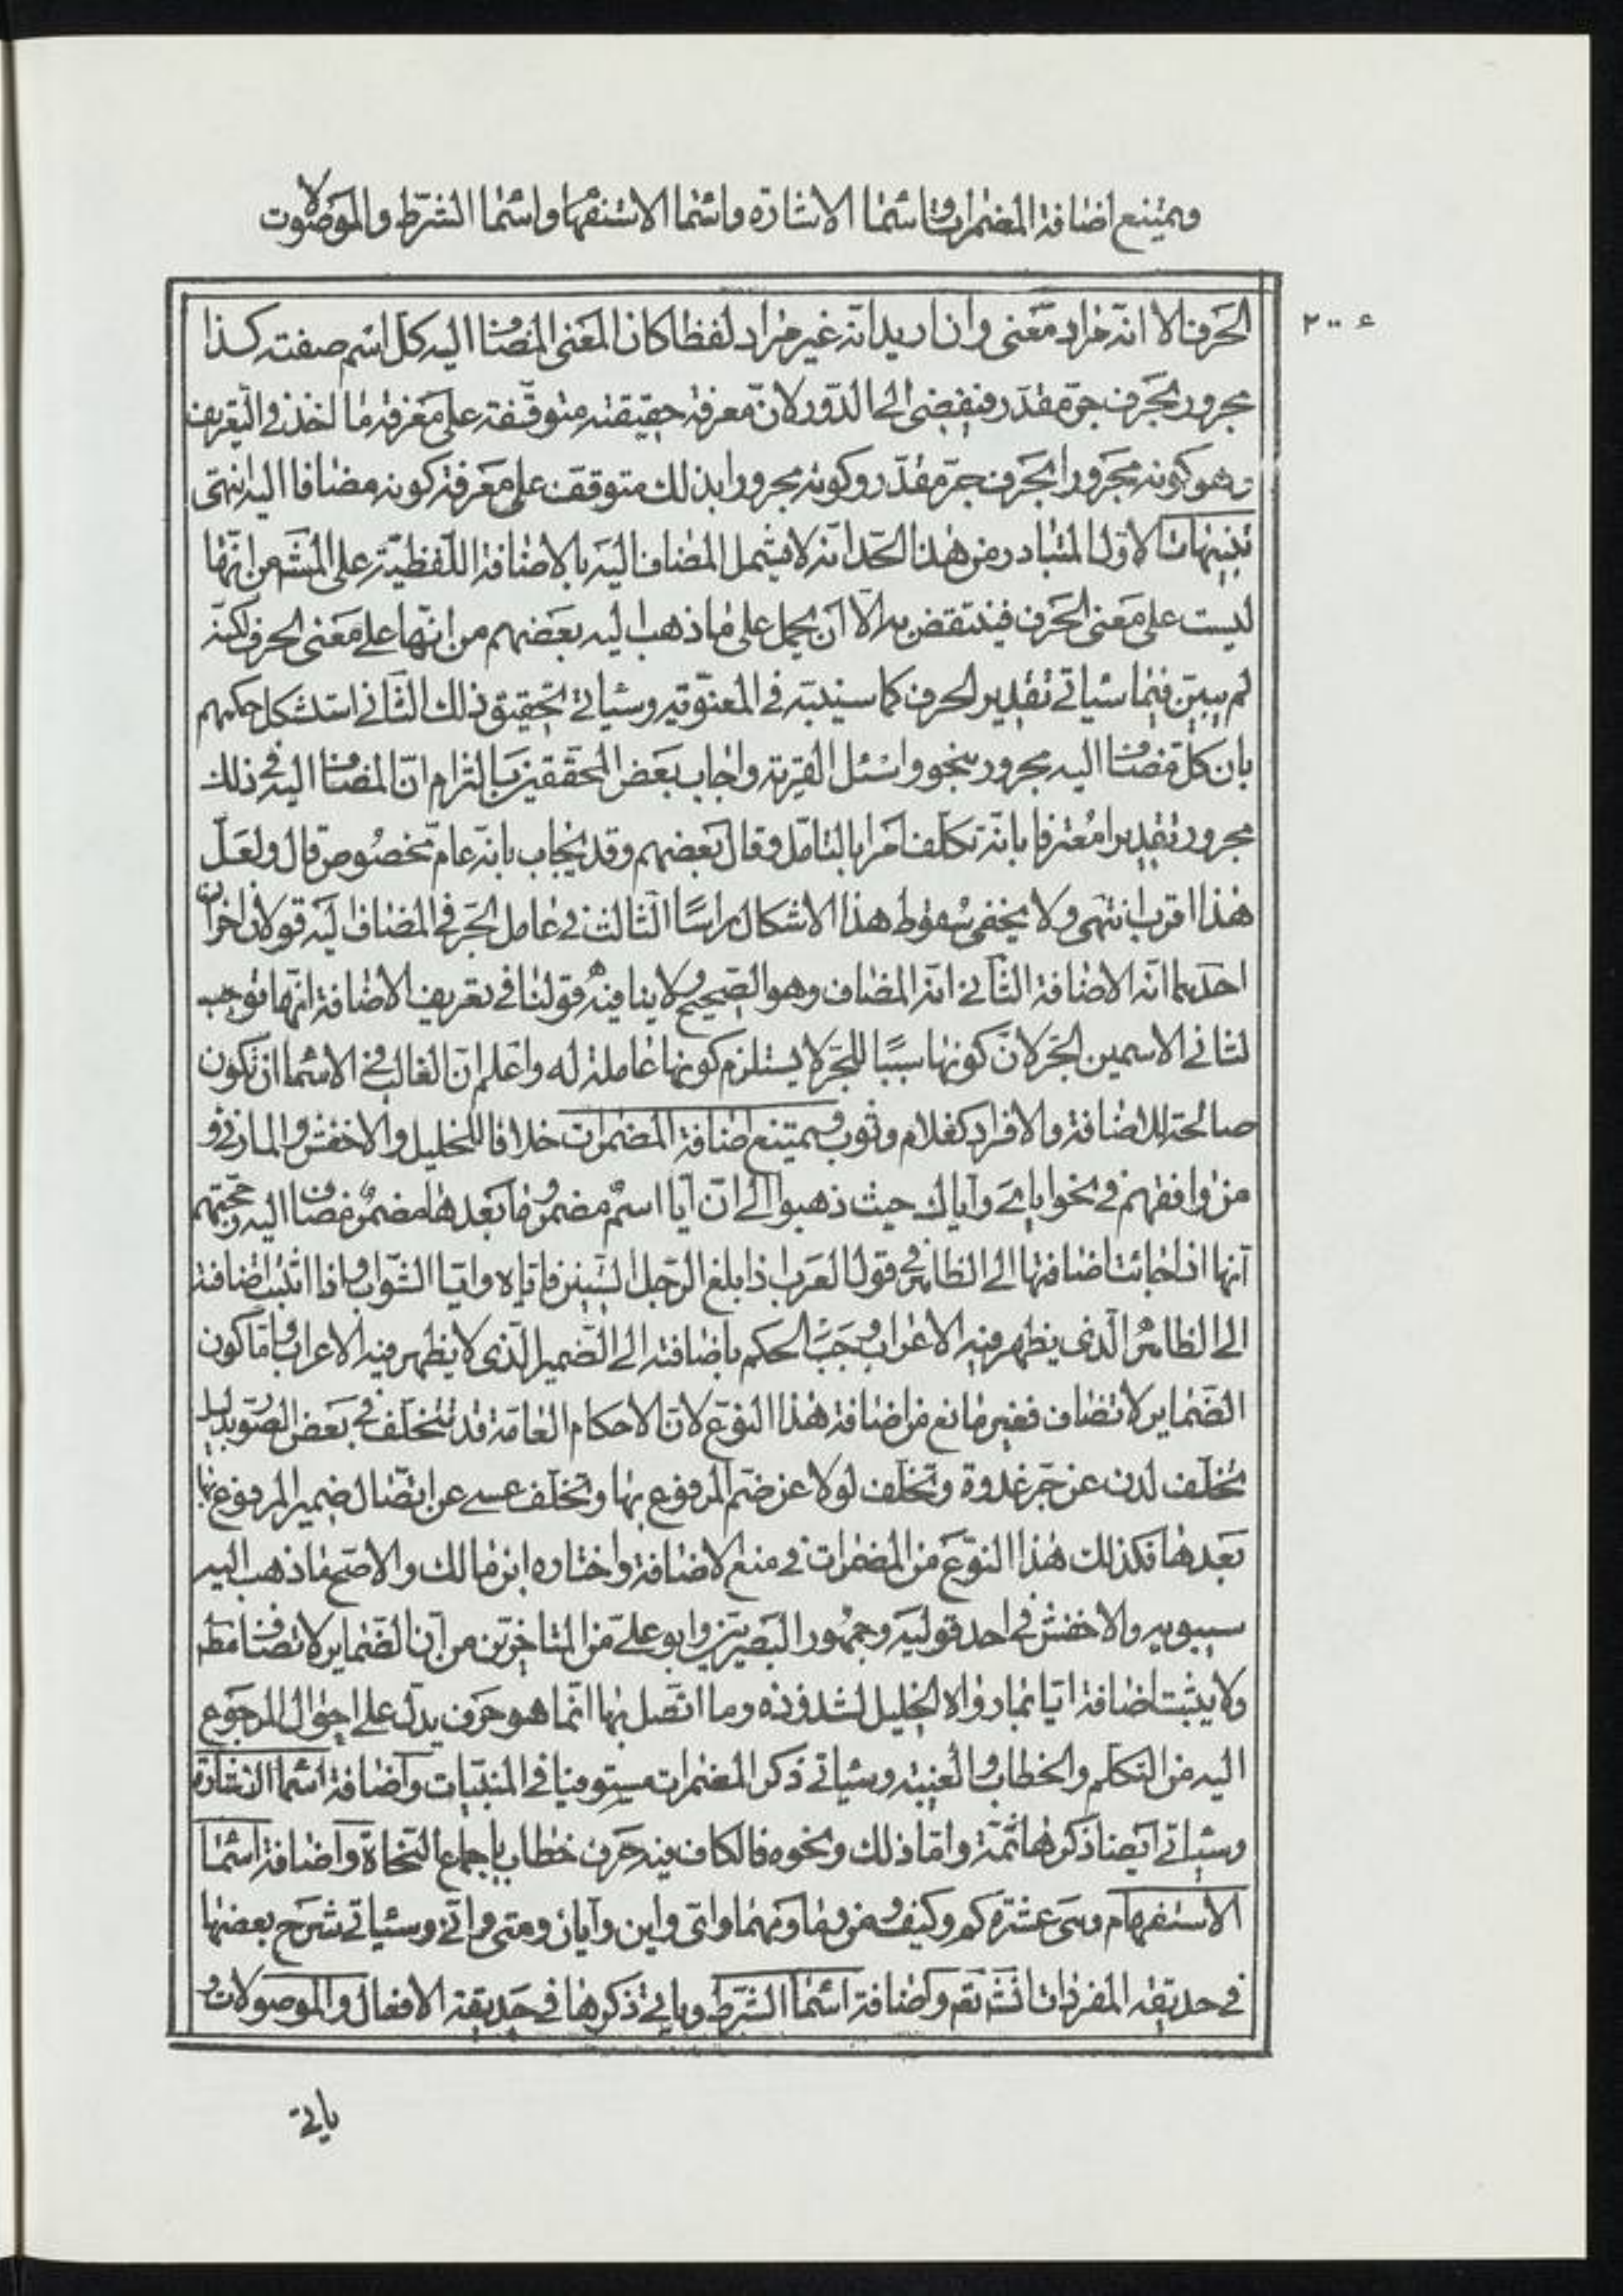 ويمتنع اضافة المضمرات واسما الاشارة واسما الاستفها واسما الشرط والموصولات
٢٠٠ ع
الحرف الا انه مراد معنى وان اريد انه غير مراد لفظا كان المعنى المضاف اليه كل اسم صفته كذا
مجرور بحرف جر مقدر فيفضى الى الدور لان معرفة حقيقته متوقفة على معرفة ما اخذ فى التعريف
وهو كونه مجرورا بحرف جر مقدر وكونه مجرورا بذلك متوقف على معرفة كونه مضافا اليه انتهى
تنبيهات الاول المتبادر من هذا الحد انه لا يشمل المضاف اليه بالاضافة اللفظية على المشه من انها
ليست على معنى الحرف فينتقض به الا ان يحمل على ما ذهب اليه بعضهم من انها على معنى الحرف لكنه
لم يبين فيما سياتى تقدير الحرف كما سيبينه فى المعنوية وسياتى تحقيق ذلك الثانى استشكل حكمهم
بان كل مضاف اليه مجرور بنحو واسئل القرية واجاب بعض المحققين بالتزام ان المضاف اليه فى ذلك
مجرور تقديرا معترفا بانه تكلف امرا بالتامل وقال بعضهم وقد يجاب بانه عام مخصوص قال ولعل
هذا اقرب انتهى ولا يخفى سقوط هذا الاشكال راسا الثالث فى عامل الجر فى المضاف اليه قولان اخران
احدهما انه الاضافة الثانى انه المضاف وهو الصحيح ولا ينافيه قولنا فى تعريف الاضافة انها توجب
لثانى الاسمين الجر لان كونها سببا للجر لا يستلزم كونها عاملة له واعلم ان الغالب فى الاسما ان تكون
صالحة للاضافة والافراد كغلام وثوب ويمتنع اضافة المضمرات خلافا للخليل والاخفش والمازنى و
من وافقهم فى نحو اياى واياك حيث ذهبوا الى ان ايا اسم مضمر وما بعدها مضمر مضاف اليه وحجتهم
انها اذ جائت اضافتها الى الظاهر فى قول العرب اذا بلغ الرجل الستين فاياه وايا الشواب واذا اثبت اضافة
الى الظاهر الذى يظهر فيه الاعراب وجب الحكم باضافته الى الضمير الذى لا يظهر فيه الاعراب واما كون
الضماير لا تضاف فغير مانع من اضافة هذا النوع لان الاحكام العامة قد تتخلف فى بعض الصور بدليل
تخلف لدن عن جر غدوة وتخلف لولا عن ضم المرفوع بها وتخلف عسى عن اتصال ضمير المرفوع بما
بعدها فكذلك هذا النوع من المضمرات فى منع الاضافة واختاره ابن مالك والاصح ما ذهب اليه
سيبويه والاخفش فى احد قوليه وجمهور البصريين وابو على من المتاخرين من ان الضماير لا تضاف مط
ولا يثبت اضافة ايا بما رواه الخليل لشذوذه وما اتصل بها انما هو حرف يدل على احوال المرجوع
اليه من التكلم والخطاب والغيبة وسياتى ذكر المضمرات مستوفيا فى المبنيات واضافة اسما الاشارة
وسياتى ايضا ذكرها ثمة واما ذلك ونحوه فالكاف فيه حرف خطاب باجماع النحاة واضافة اسما
الاستفهام وهى عشرة كم وكيف ومن وما ومهما واى واين وايان ومتى وانى وسياتى شرح بعضها
فى حديقة المفردات انش تع واضافة اسما الشرط وياتى ذكرها فى حديقة الافعال والموصولات و
ياتى